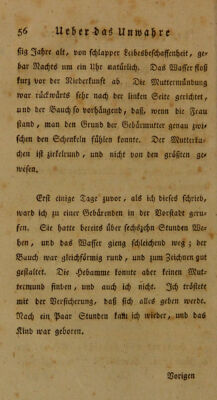 56 Ueber das Unwahre
ßig Jahre alt, von schlapper Leibesbeschaffenheit, ge-
bar Nachts um ein Uhr natürlich. Das Wasser floß
kurz vor der Niederkunft ab. Die Muttermündung
war rückwärts sehr nach der linken Seite gerichtet,
und der Bauch so vorhängend, daß, wenn die Frau
stand, man den Grund der Gebärmutter genau zwi-
schen den Schenkeln fühlen konnte. Der Mutterku-
chen ist zirkelrund, und nicht von den größten ge-
wesen.
Erst einige Tage zuvor, als ich dieses schrieb,
ward ich zu einer Gebärenden in der Vorstadt geru-
fen. Sie hatte bereits über sechszehn Stunden We-
hen, und das Wasser gieng schleichend weg; der
Bauch war gleichförmig rund, und zum Zeichnen gut
gestaltet. Die Hebamme konnte aber keinen Mut-
termund finden, und auch ich nicht. Ich tröstete
mit der Versicherung, daß sich alles geben werde.
Nach ein Paar Stunden kam ich wieder, und das
Kind war geboren.
Vorigen